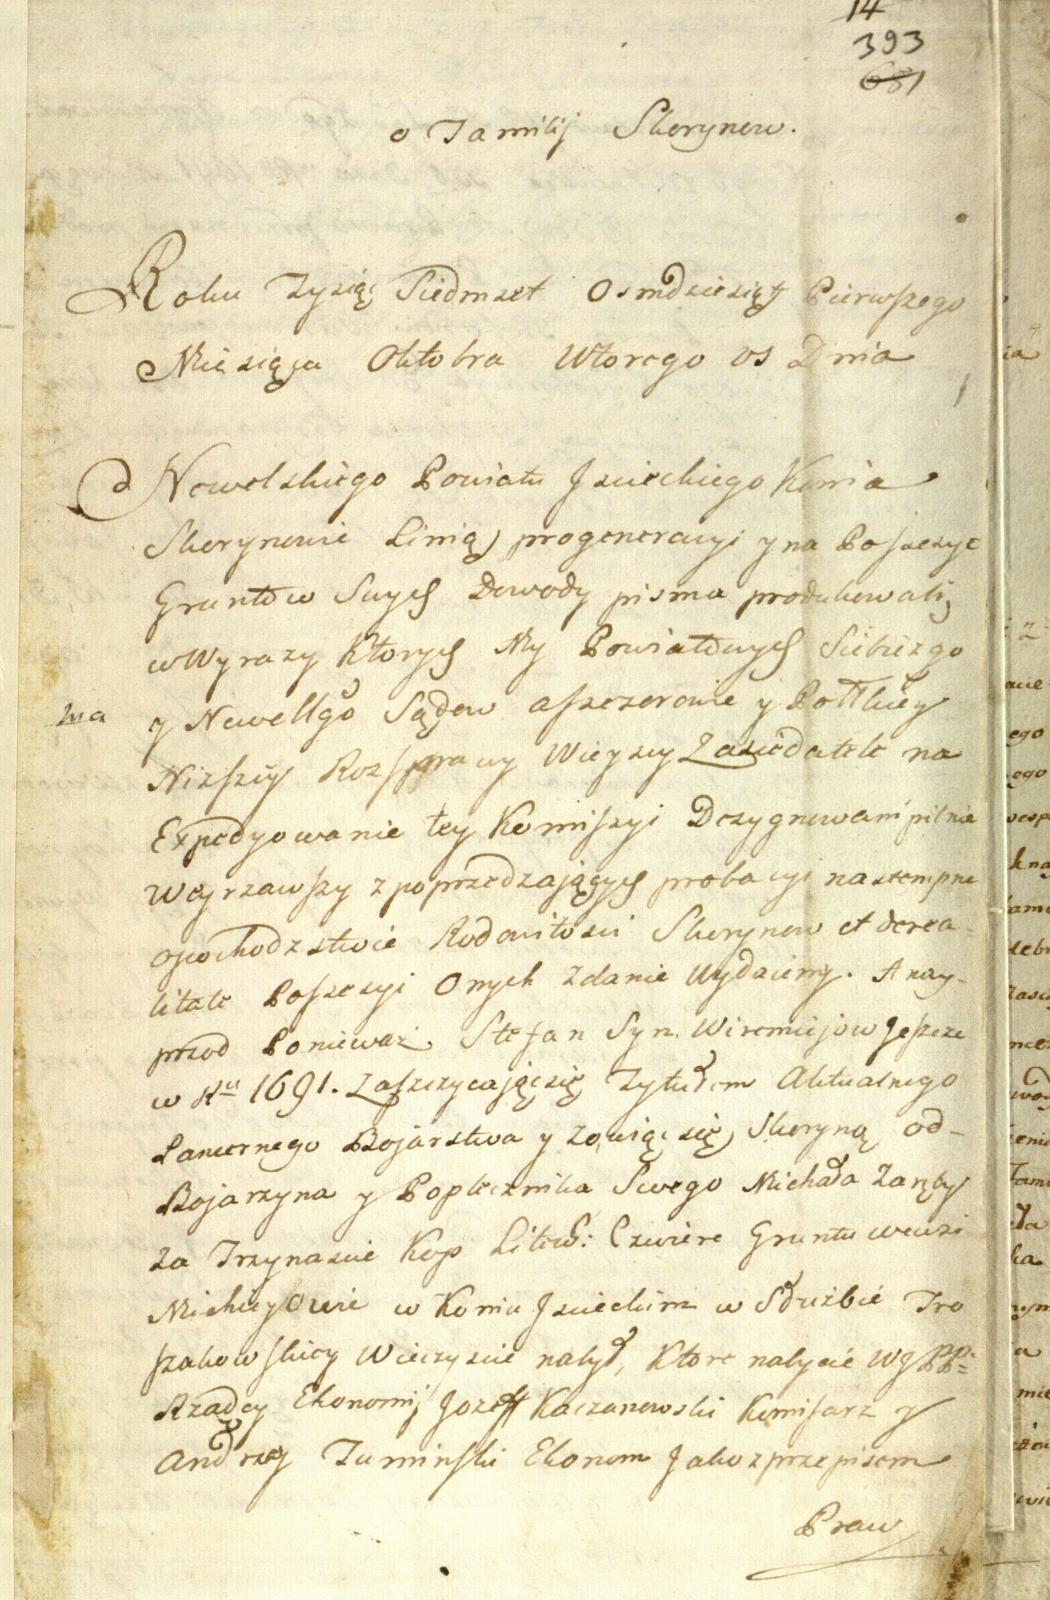 14
393
681
o Familij Skerynow.
Roku Tysiąc Siedmset Osmdziesiąt Pierwszego
Miesiąca Oktobra Wtorego vs Dnia
Newelskiego Powiatu Jsieckiego Konia
Skerynowie Linią progeneracyi y na Possessye
Gruntow Swych Dowody pisma produkowali,
w Wyrazy Ktorych My Powiatowych Siebiezgo
y Newellgo Sądow assessorowie y
ma
Niższey Rosprawy Wieyscy Zasiedatele na
Expedyowanie tey Komissyi Dezygnowani pilnie
Weyrzawszy z poprzedzających probacyi nastempne
opochodzstwie Rodowitosci Skerynow et de rea-
litate Possesyi Onych zdanie Wydaiemy. A nay-
przod Ponieważ Stefan Syn Wiremiejow Jeszcze
w Ru 1691. Zaszczycającsię Tytułem Aktualnego
Pancernego Bojarstwa y zowiąc się Skeryną od-
Bojarzyna y Poplecznika Swego Michała Zaręby
Za Trzynascie Kop Litew: Czwierc Gruntu wewsi
Michieyowie w Koniu Jsieckim w Służbie Tro
szakowskiey Wieczyscie nabył, Ktore nabycie WJPP:
Rządcy Ekonomij Jozeff Kaczanowski Komisarz y
Andrzey Tuminski Ekonom Jako z przepisem
Praw